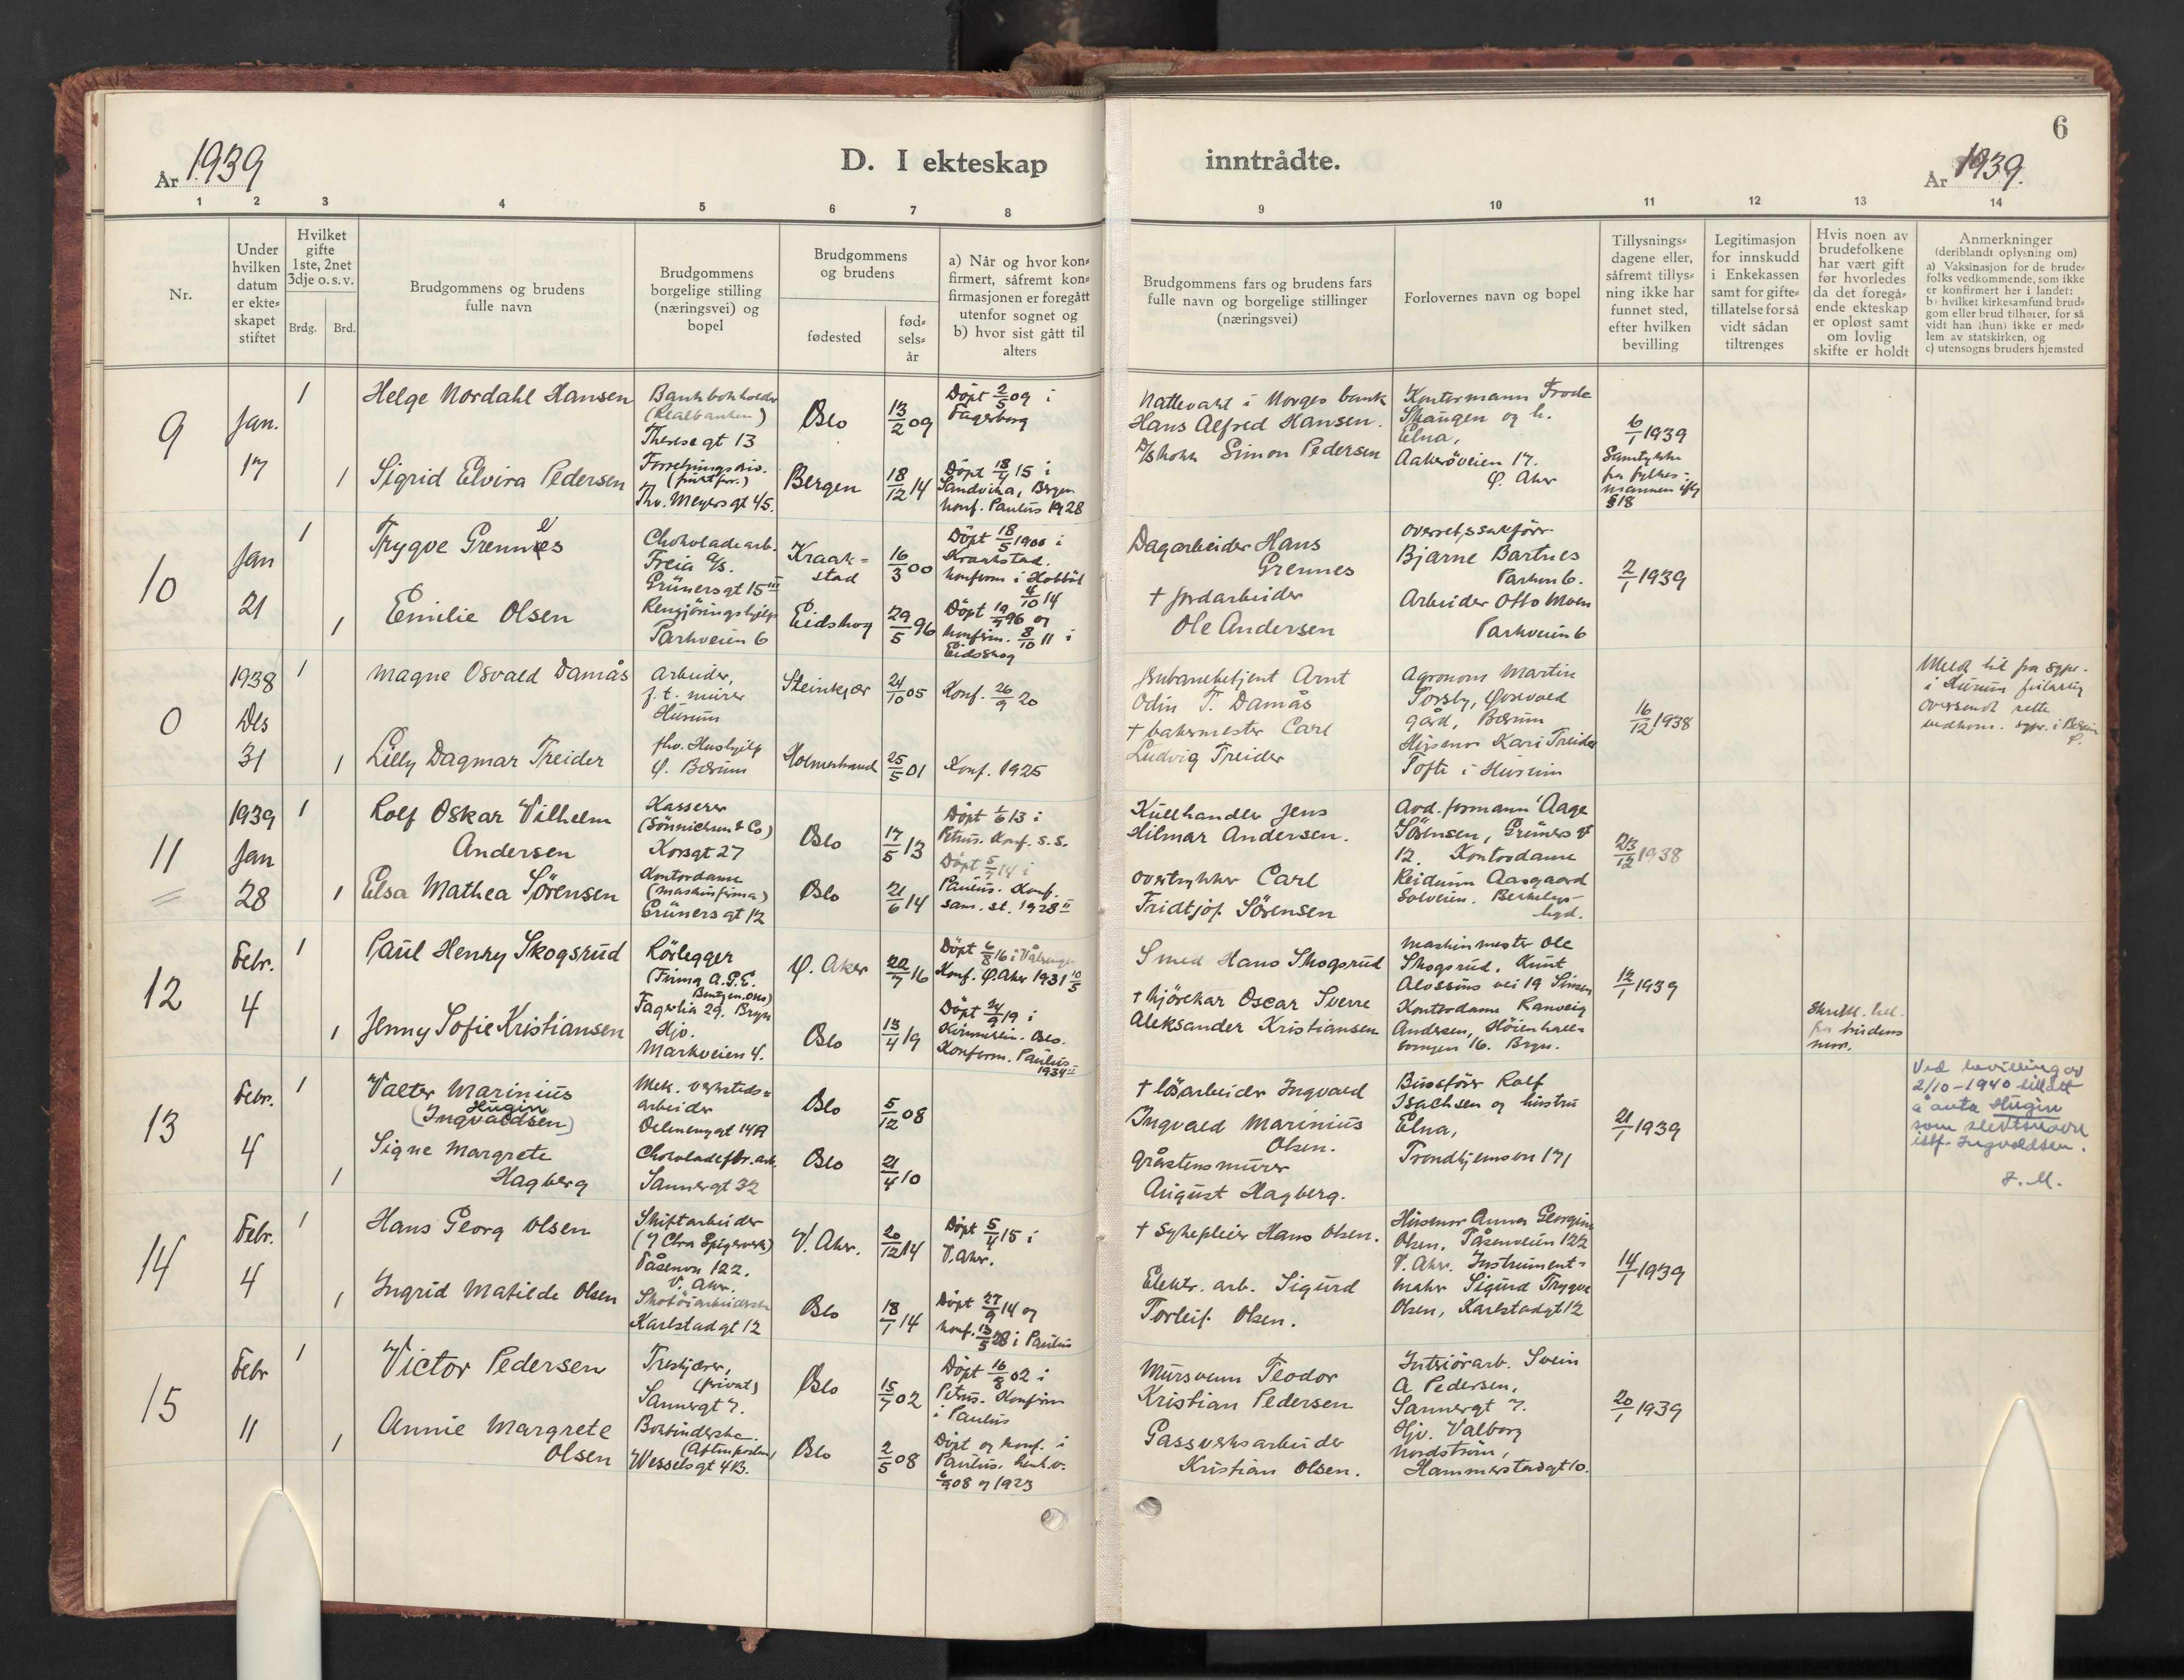 6
År 1939
D. I ekteskap
inntrådte.
År 1939.
1 2 3 4 5 6 7 8 9 10 11 12 13 14
Nr.
Under
hvilken
datum
er ekte-
skapet
stiftet
Hvilket
gifte
1ste, 2net
3dje o. s. v.
Brdg. Brd.
Brudgommens og brudens
fulle navn
Brudgommens
borgelige stilling
(næringsvei) og
bopel
Brudgommens
og brudens
fødested
fød-
sels-
år
a) Når og hvor kon-
firmert, såfremt kon-
firmasjonen er foregått
utenfor sognet og
b) hvor sist gått til
alters
Brudgommens fars og brudens fars
fulle navn og borgelige stillinger
(næringsvei)
Forlovernes navn og bopel
Tillysnings-
dagene eller,
såfremt tillys-
ning ikke har
funnet sted,
efter hvilken
bevilling
Legitimasjon
for innskudd
i Enkekassen
samt for gifte-
tillatelse for så
vidt sådan
tiltrenges
Hvis noen av
brudefolkene
har vært gift
før hvorledes
da det foregå-
ende ekteskap
er opløst samt
om lovlig
skifte er holdt
Anmerkninger
(deriblandt oplysning om)
a) Vaksinasjon for de brude-
folks vedkommende, som ikke
er konfirmert her i landet:
b) hvilket kirkesamfund brud-
gom eller brud tilhører, for så
vidt han (hun) ikke er med-
lem av statskirken, og
c) utensogns bruders hjemsted
9
Jan.
17
1
Helge Nordahl Hansen
Bankbokholder
(Realbanken)
Therese gt 13
Oslo
13/2 09
Døpt 2/5 09 i
Fagerborg
Nattevakt i Norges bank
Hans Alfred Hansen.
Kontormann Frode
Skaugen og h.
Elna,
Aakerøveien 17.
Ø. Aker
6/1 1939
Samtykke
fra fylkes-
mannen
§ 18
1
Sigrid Elvira Pedersen
Thv. Meyers gt 45.
Bergen
18/12 14
Døpt 18/4 15 i
Sandvika, Bergen
konf. Paulus 1928
Simon Pedersen
10
Jan
21
1
Trygve Grennes
Chokoladearb.
Freia A/S.
Grüners gt 15 III
Kraak-
stad
16/3 00
Døpt 18/5 1900 i
Kraakstad.
konfirm i Hobbøl
4/10 14
Dagarbeider Hans
Grennes
Overretssakfører
Bjarne Bartnes
Parkv 6.
Arbeider Otto Moen
Parkveien 6
2/1 1939
1
Emilie Olsen
Rengjøringshjelp
Parkveien 6
Eidskog
29/5 96
Døpt 19/7 96 og
konfirm. 8/10 11 i
Eidskog
† Jordarbeider
Ole Andersen
0
1938
Des
31
1
Magne Osvald Damås
Arbeider,
f. t. murer
Hurum
Steinkjer
24/10 05
Konf. 26/9 20
Arnt
Odin T. Damås
Agronom Martin
Torsby,
gård, Bærum
Husmor Kari Treider
Tofte i Hurum
16/12 1938
Meldt til fra sgpr.
i Hurum feilaktig
oversendt rette
vedkom. sgpr. i Bærum
1
Lilly Dagmar Treider
fhv. Hushjelp
Ø. Bærum
Holmestrand
25/5 01
Konf. 1925
† bakermester Carl
Ludvig Treider
11
1939
Jan
28
1
Rolf Oskar Vilhelm
Andersen
Kasserer
(Sønnichsen & Co)
Korsgt 27
Oslo
17/5 13
Døpt 1/6 13 i
Petrus. Konf. s. s.
Kullhandler Jens
Hilmar Andersen.
Avd. formann Aage
Sørensen, Grüners gt
12. Kontordame
Reidunn Aasgaard
Solveien. Bekkelags-
høgd.
23/12 1938
1
Elsa Mathea Sørensen
Kontordame
(maskinfirma)
Grüners gt 12
Oslo
21/6 14
Døpt 5/7 14 i
Paulus. Konf.
sam. st. 1928 II
Overtrykker Carl
Fridtjof Sörensen
12
Febr.
4
1
Paul Henry Skogsrud
Rørlegger
(Firma A. G. E.
Bentzen. Oslo)
Fagerlia 29. Bryn
Ø. Aker
22/7 16
Døpt 6/8 16 i Vålerengen
Konf. Ø. Aker 1931 10/5
Smed Hans Skogsrud
Maskinmester Ole
Skogsrud, Knut
Alvssøns vei 19 Sinsen
Kontordame Ranveig
Andersen, Høienhall-
svingen 16. Bryn.
12/1 1939
Skriftl. till.
fra brudens
mor.
1
Jenny Sofie Kristiansen
Hjv.
Markveien 4.
Oslo
13/4 19
Døpt 14/9 19 i
Oslo.
Konferm. Paulus
1934 II
† kjørekar Oscar Sverre
Aleksander Kristiansen
13
Febr.
4
1
Valter Marinius
Hugin
(Ingvaldsen)
Mek. verksteds-
arbeider
Delenenggt 14A
Oslo
5/12 08
† løsarbeider Ingvald
Ingvald Marinius
Olsen.
Bussfører Rolf
Isachsen og hustru
Elna,
Trondhjemsvn 171
21/1 1939
Ved bevilling av
2/10-1940 tillatt
å anta Hugin
som slektsnavn
istf. Ingvaldsen.
J. M.
1
Signe Margrete
Hagberg
Chokoladefbr. arb.
Sannergt 32
Oslo
21/4 10
Gråstensmurer
August Hagberg.
14
Febr.
4
1
Hans Georg Olsen
Skiftarbeider
(v/ Chra Spigerverk)
Tåsenvn 122.
V. Aker.
V. Aker.
20/12 14
Døpt 5/4 15 i
V. Aker.
† Sykepleier Hans Olsen.
Husmor Anna Georgine
Olsen, Tåsenveien 122
V. Aker. Instrument-
maker Sigurd Trygve
Olsen, Karlstadgt 12
14/1 1939
1
Ingrid Matilde Olsen
Skotøiarbeiderske
Karlstadgt 12
Oslo
18/1 14
Døpt 27/9 14 og
konf. 13/5 28 i Paulus
Elektr. arb. Sigurd
Torleif Olsen.
15
Febr
11
1
Victor Pedersen
Treskjærer,
(privat)
Sannergt 7.
Oslo
15/7 02
Døpt 16/8 02 i
Petrus. Konfirm
i Paulus
Mursvenn Teodor
Kristian Pedersen
Interiørarb. Svein
A Pedersen,
Sannergt 7.
Hjv. Valborg
Nordstrøm,
Hammerstadgt 10.
20/1 1939
1
Annie Margrete
Olsen
Bokbinderske
(Aftenposten)
Wesselsgt 4B.
Oslo
2/5 08
Døpt og konf. i
Paulus. henh. v.
6/9 08 og 1923
Gassverksarbeider
Kristian Olsen.